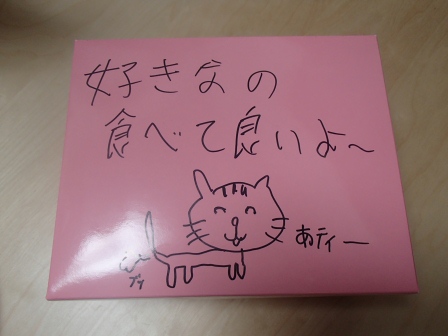 好きなの
食べて良いよ～
あティー
プゥ